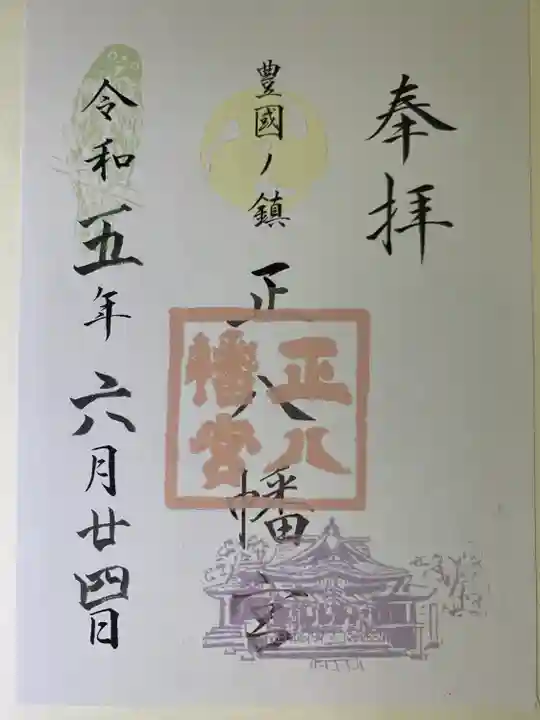 奉拝
豊國ノ鎮
正八幡宮
正八
幡宮
令和五年六月廿四日